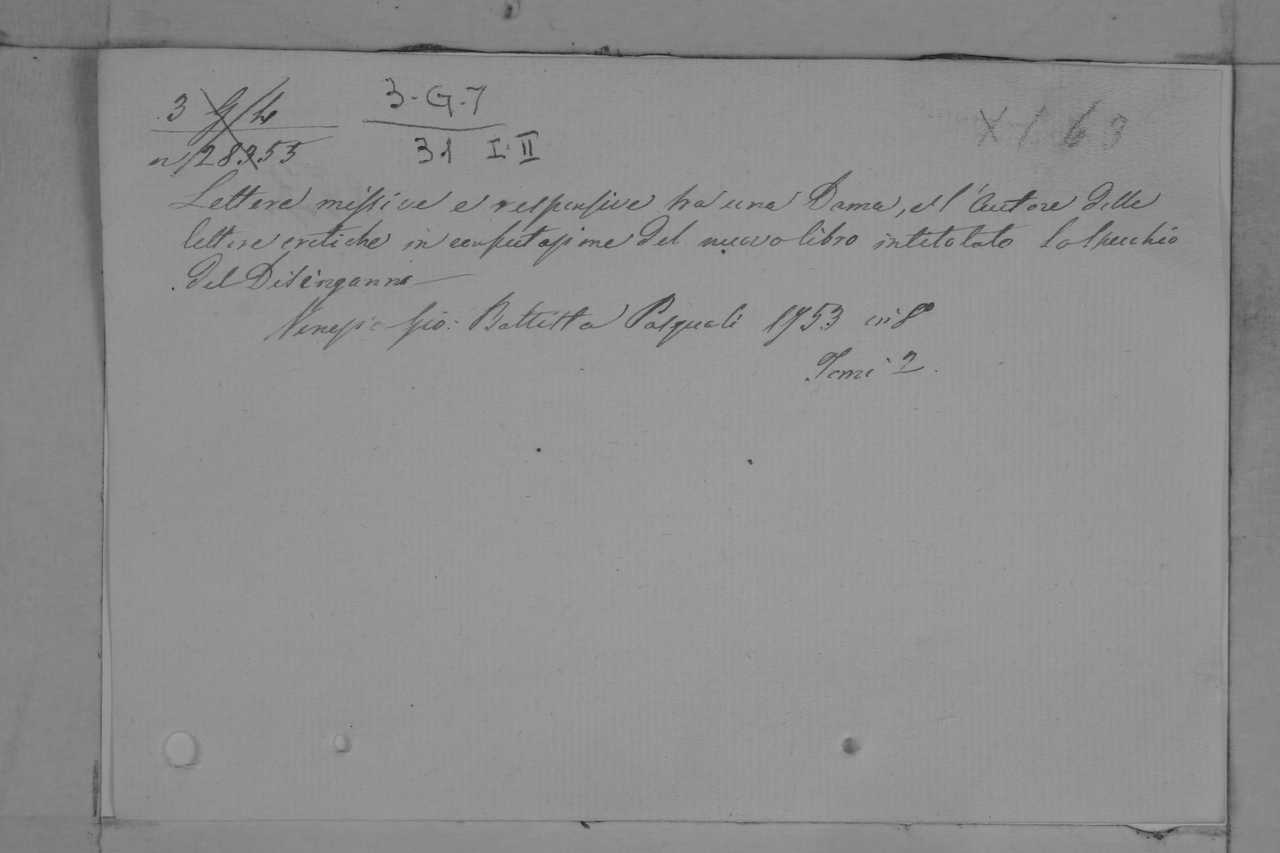 3 3-G-7 X 1 63
n 28253 31 I-II
Lettere missive e responsive tra una Dama, e l'Autore delle
lettere critiche in confutazione del nuovo libro intitolato Lo Specchio
del Disinganno
Venezia Gio: Battista Pasquali 1753 in 8º
Tomi 2.